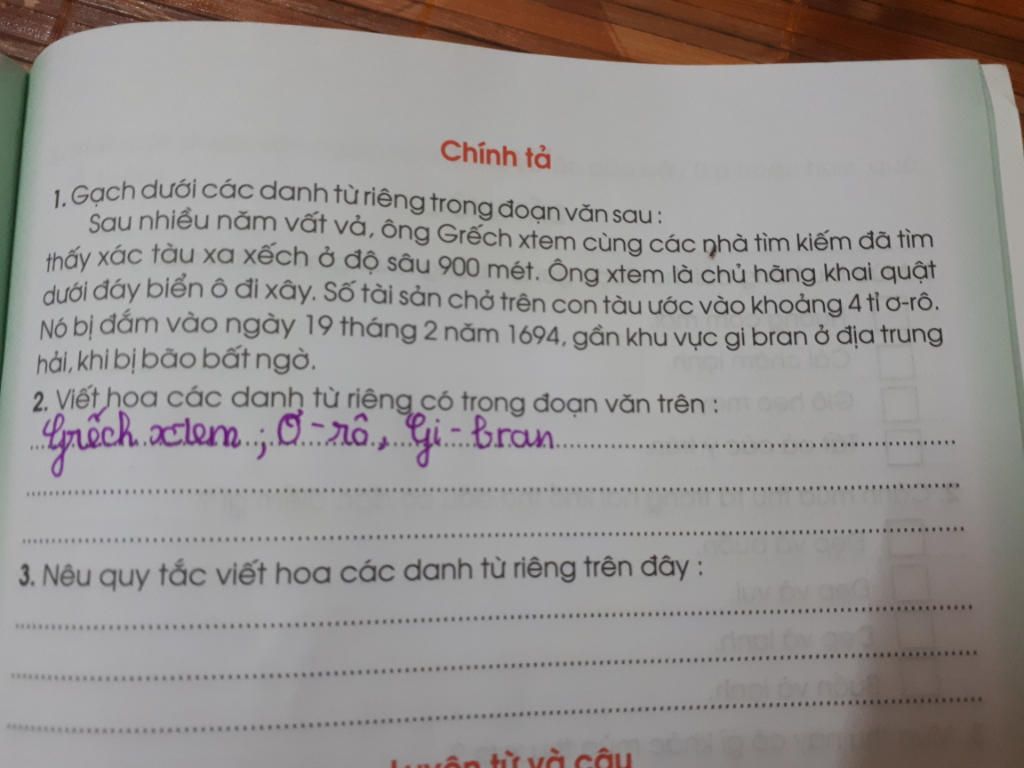 Chính tả
1. Gạch dưới các danh từ riêng trong đoạn văn sau :
Sau nhiều năm vất vả, ông Grếch xtem cùng các nhà tìm kiếm đã tìm
thấy xác tàu xa xếch ở độ sâu 900 mét. Ông xtem là chủ hãng khai quật
dưới đáy biển ô đi xây. Số tài sản chở trên con tàu ước vào khoảng 4 tỉ ơ-rô.
Nó bị đắm vào ngày 19 tháng 2 năm 1694, gần khu vực gi bran ở địa trung
hải, khi bị bão bất ngờ.
2. Viết hoa các danh từ riêng có trong đoạn văn trên :
Grếch xtem ; Ơ-rô, Gi-bran
3. Nêu quy tắc viết hoa các danh từ riêng trên đây :
Luyện từ và câu